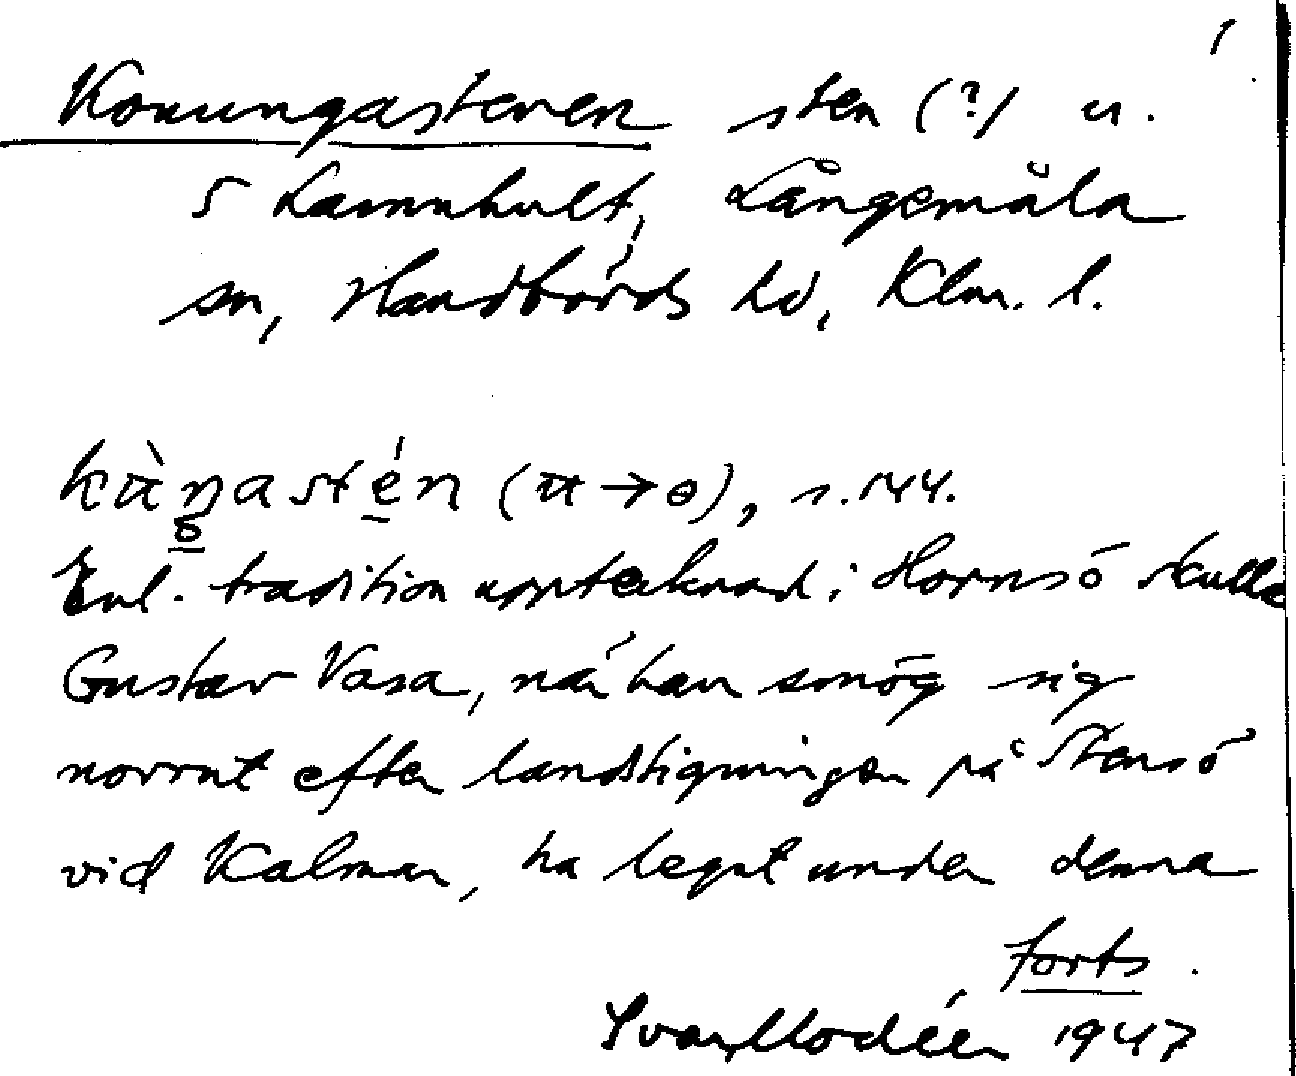 1
Konungastenen sten (?) u.
S Lammhult, Långemåla
sn, Handbörds hd, Klm. l.
(u → ɵ), s. 144.
Enl. tradition upptecknad i Hornsö skulle
Gustav Vasa, när han smög sig
norrut efter landstigningen på Stensö
vid Kalmar, ha legat under denna
forts.
Ivar Modéer 1947